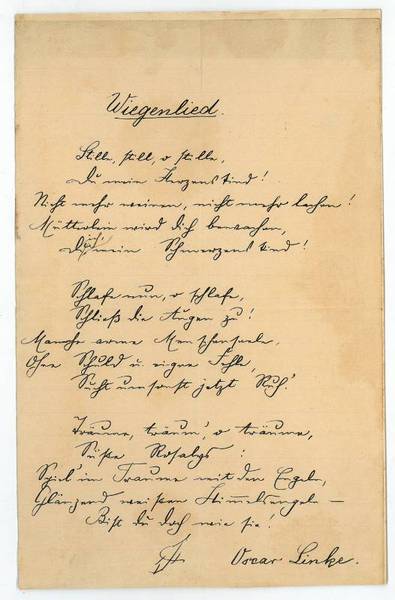 Wiegenlied.
Stille, still, o stille,
Du mein Herzenskind!
Nicht mehr weinen, nicht mehr lachen!
Mütterlein wird dich bewachen,
Du, mein Schmerzenskind!
Schlafe nun, o schlafe,
Schließ die Augen zu!
Manche arme Menschenseele,
Ohne Schuld u. eigne Fehle,
Sucht umsonst jetzt Ruh'.
Träume, träum', o träume,
Süßte :
Spiel' im Traume mit den Engeln,
Glänzend weißen Himmelsengeln –
Bist du doch wie sie!
Oscar Linke.